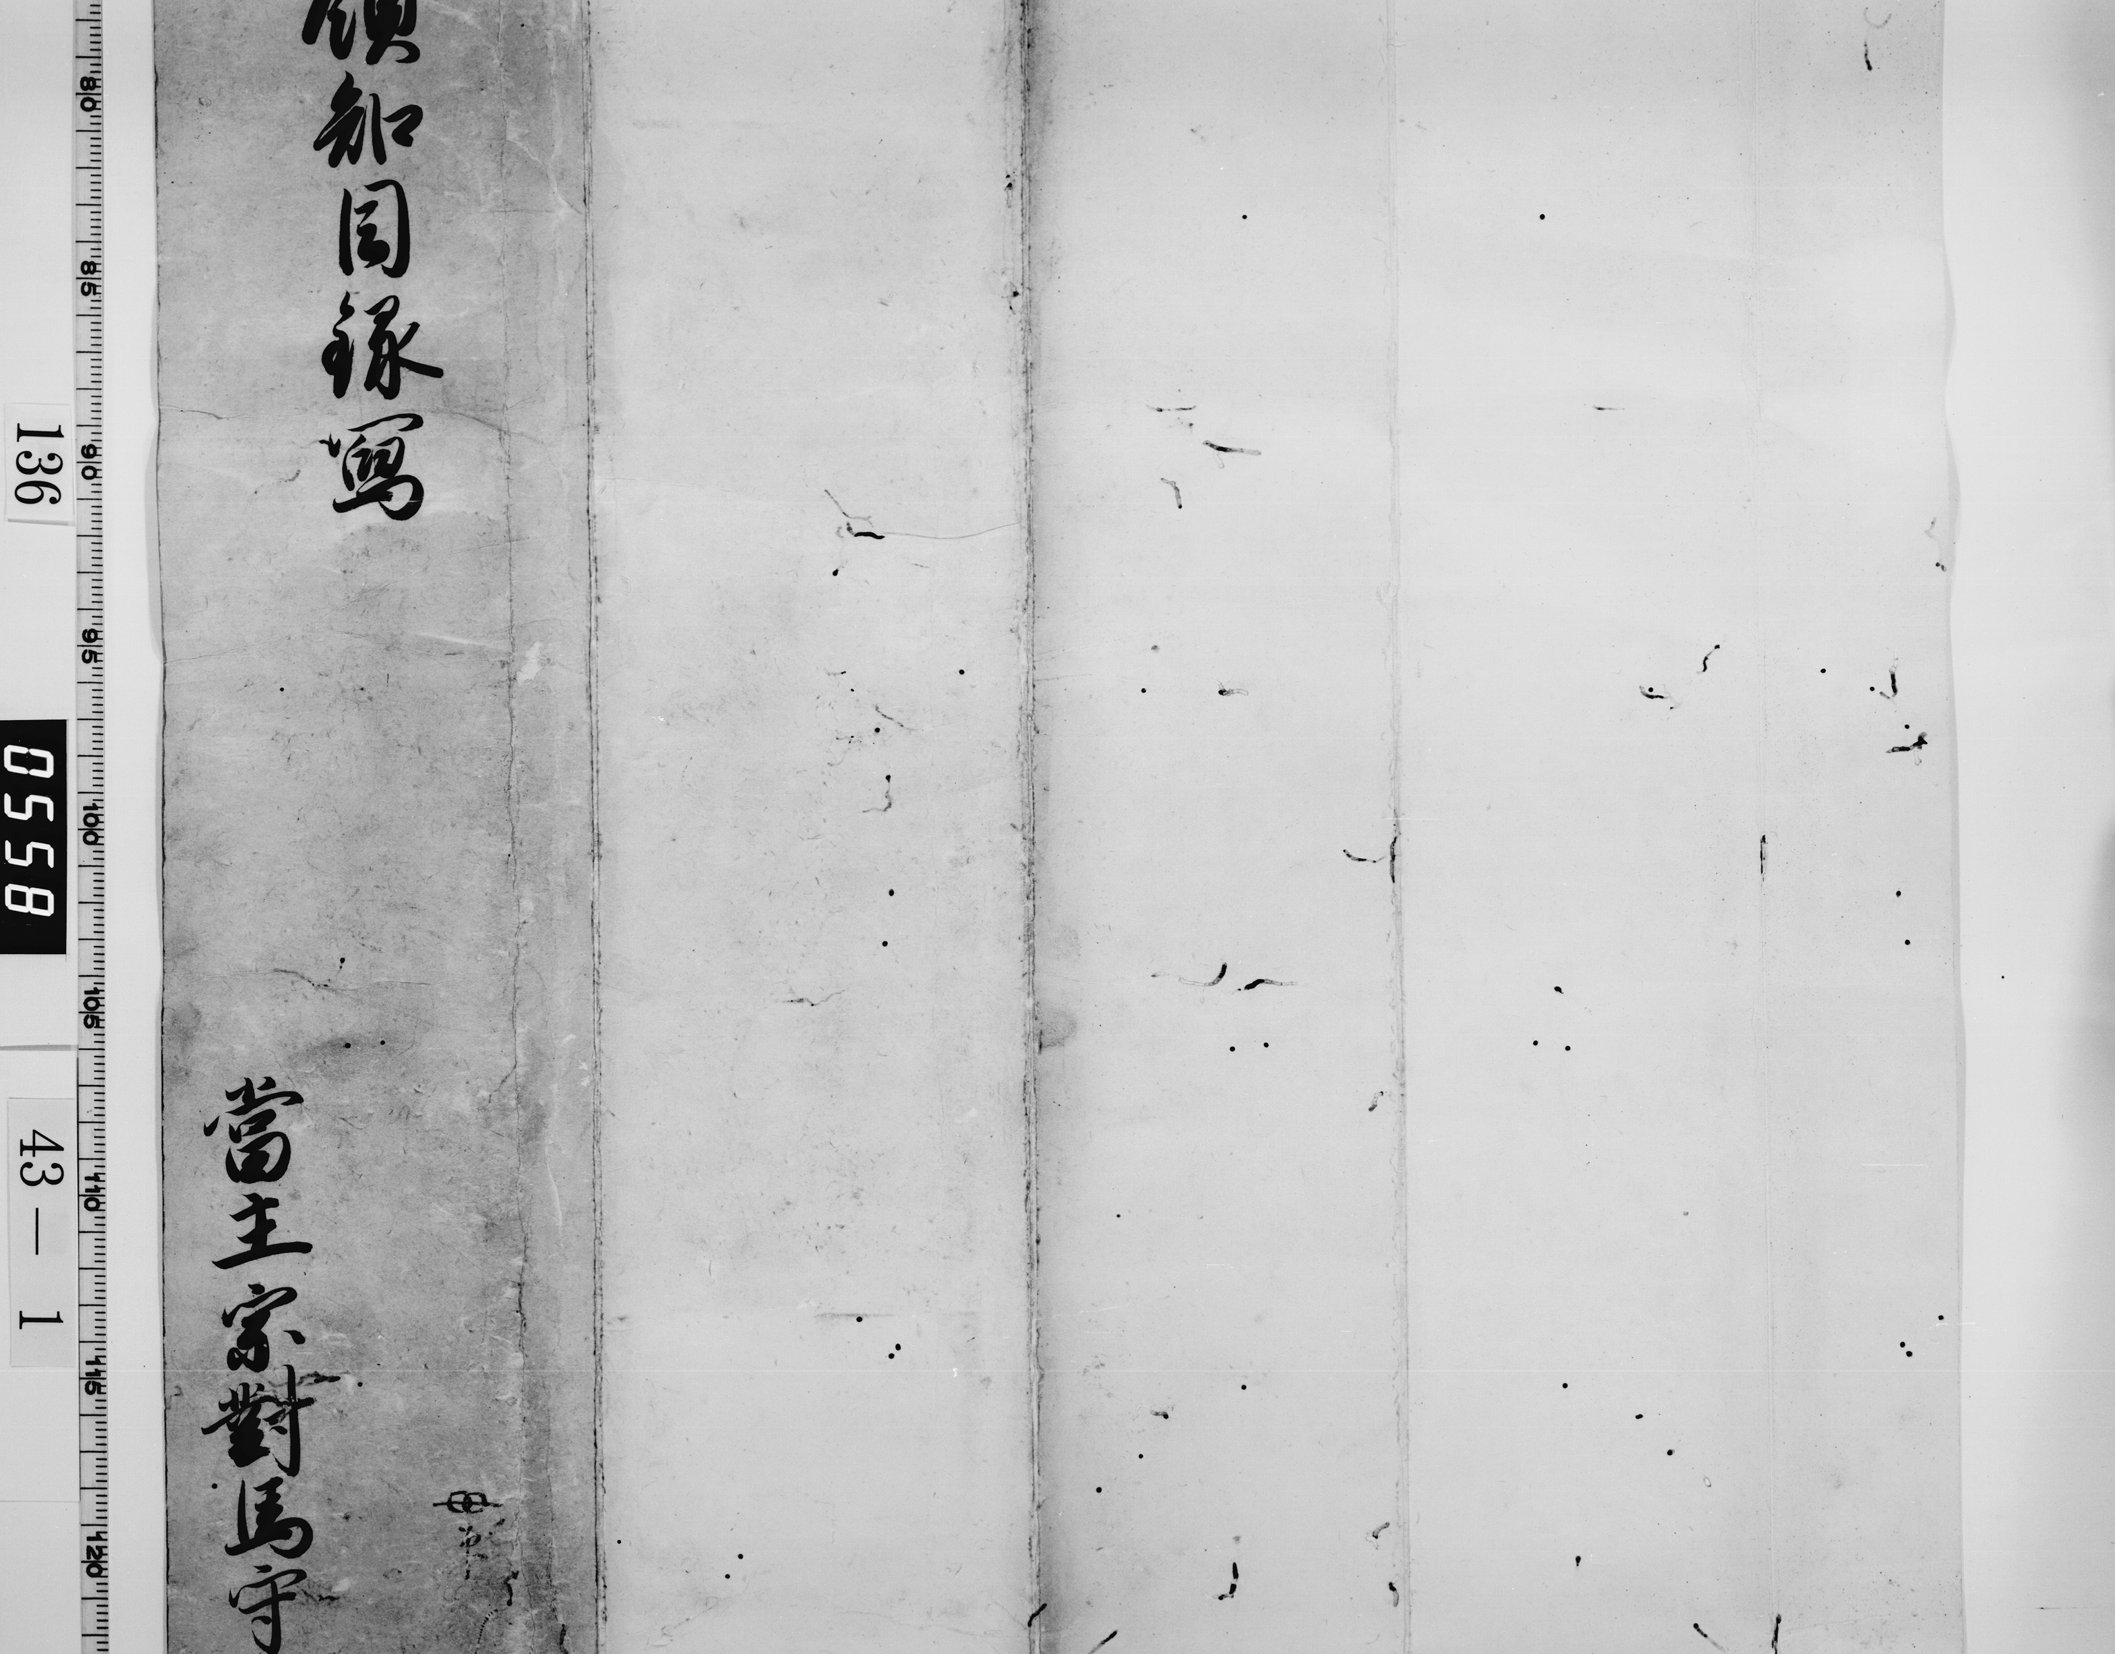 領知目録寫
當主宗對馬守
136
0558
43 — 1
80 85 90 95 100 105 110 115 120